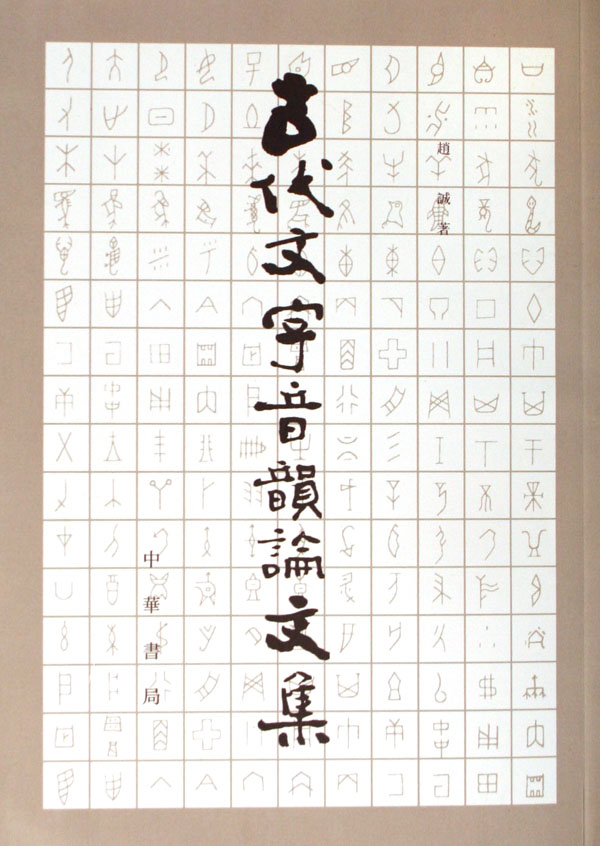 趙誠著
古代文字音韻論文集
中華書局